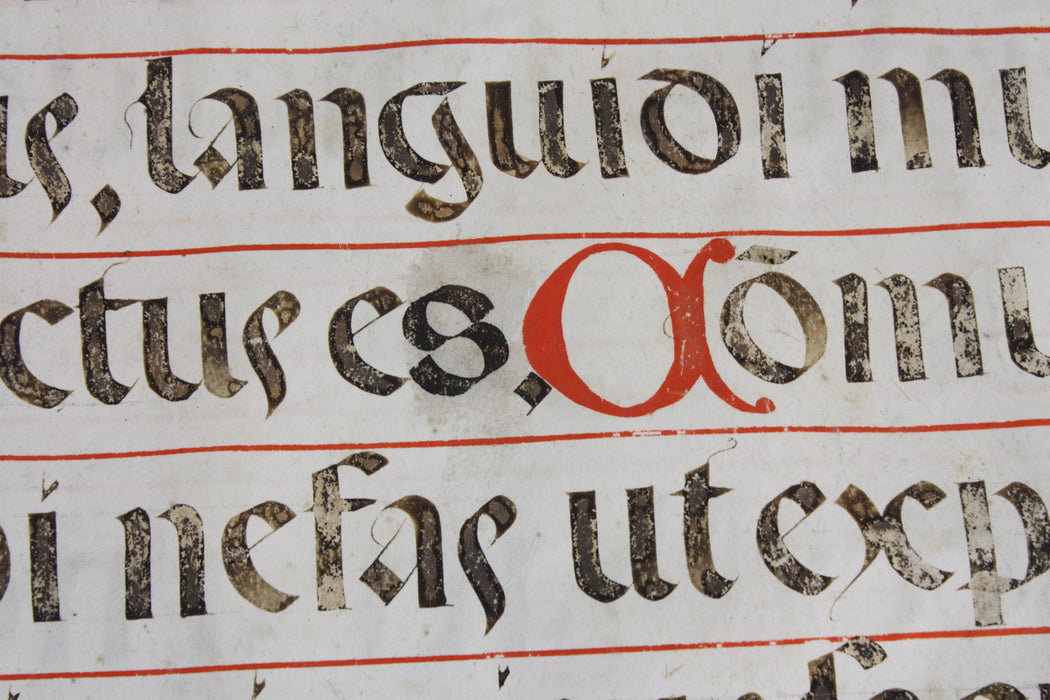 us, languidi mu
ctus es. Aōmu
i nefas ut exp